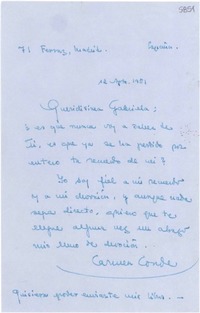 5859
71 Ferraz, Madrid España
12 Agto. 1951
Queridísima Gabriela:
¿ es que nunca voy a saber de
Ti, es que ya se ha perdido por
entero tu recuerdo de mí?
Yo soy fiel a mi recuerdo
y a mi devoción, y aunque nada
sepa directo, aspiro que te
llegue alguna vez un abrazo
mío lleno de devoción.
Carmen Conde
Quisiera poder enviarte mis libros. —